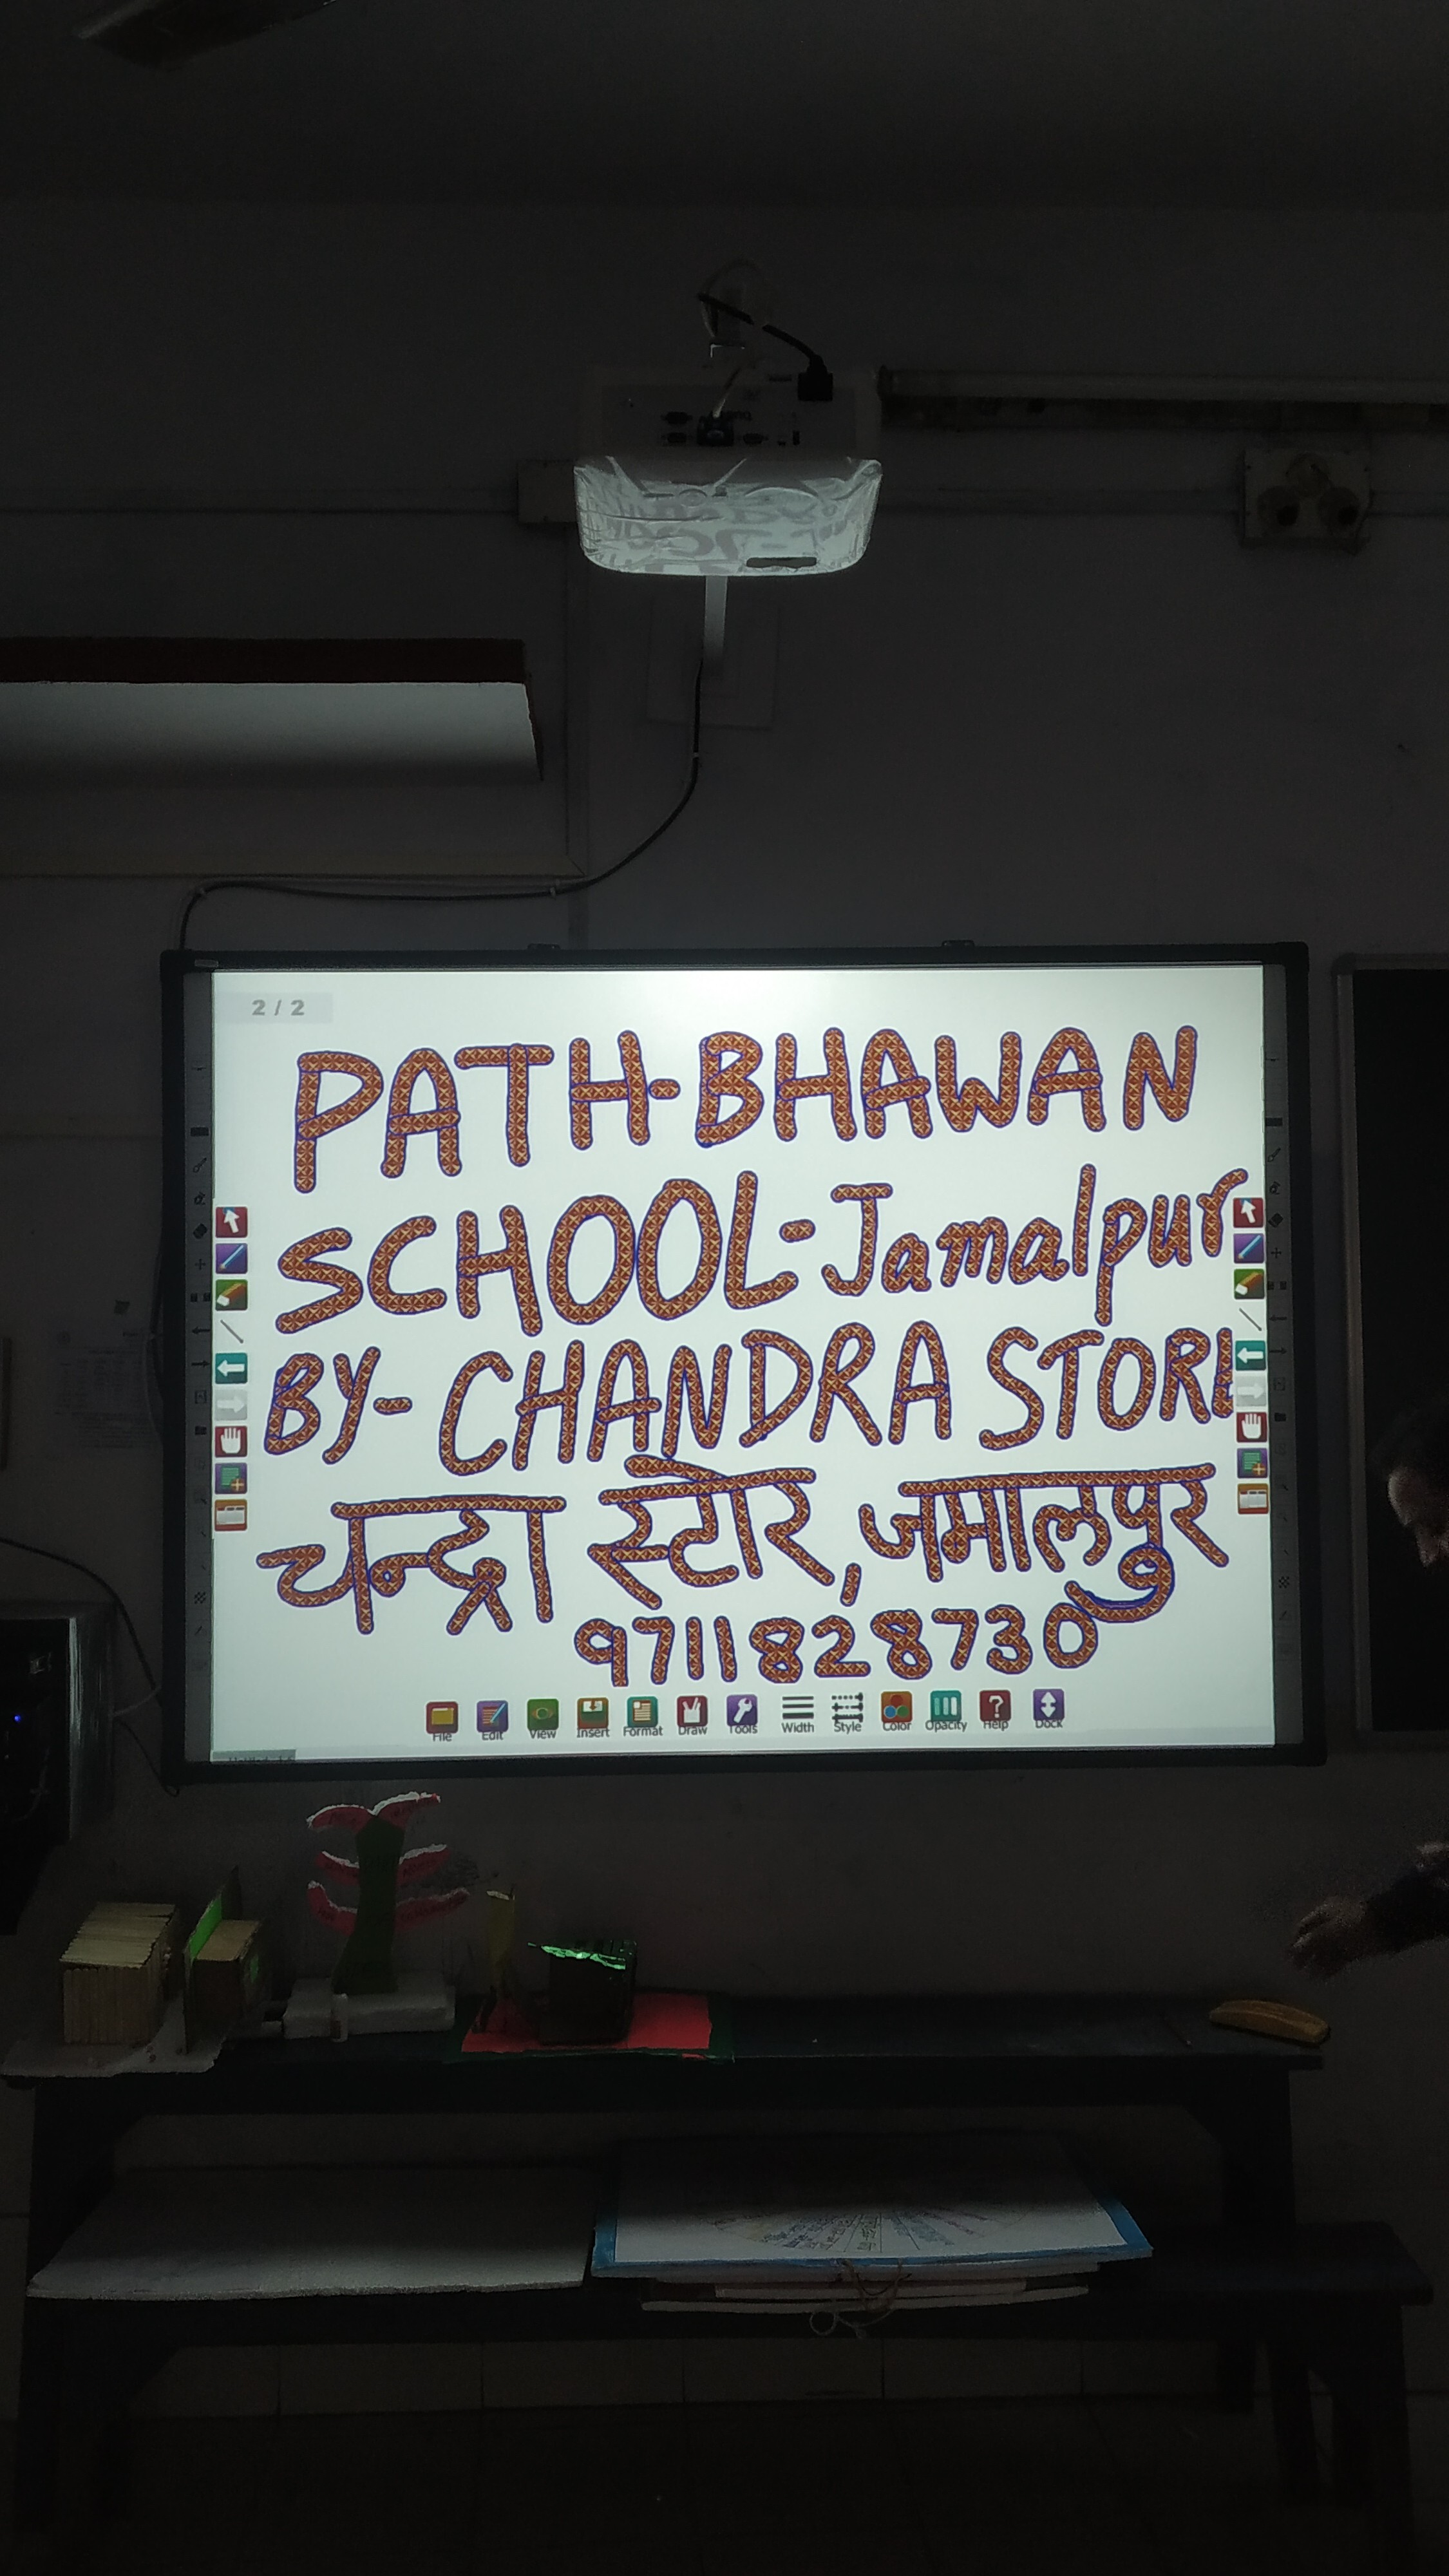 2 / 2
PATH-BHAWAN
SCHOOL-Jamalpur
BY- CHANDRA STORE
चन्द्रा स्टोर, जमालपुर
9711828730
File Edit View Insert Format Draw Tools Width Style Color Opacity Help Dock